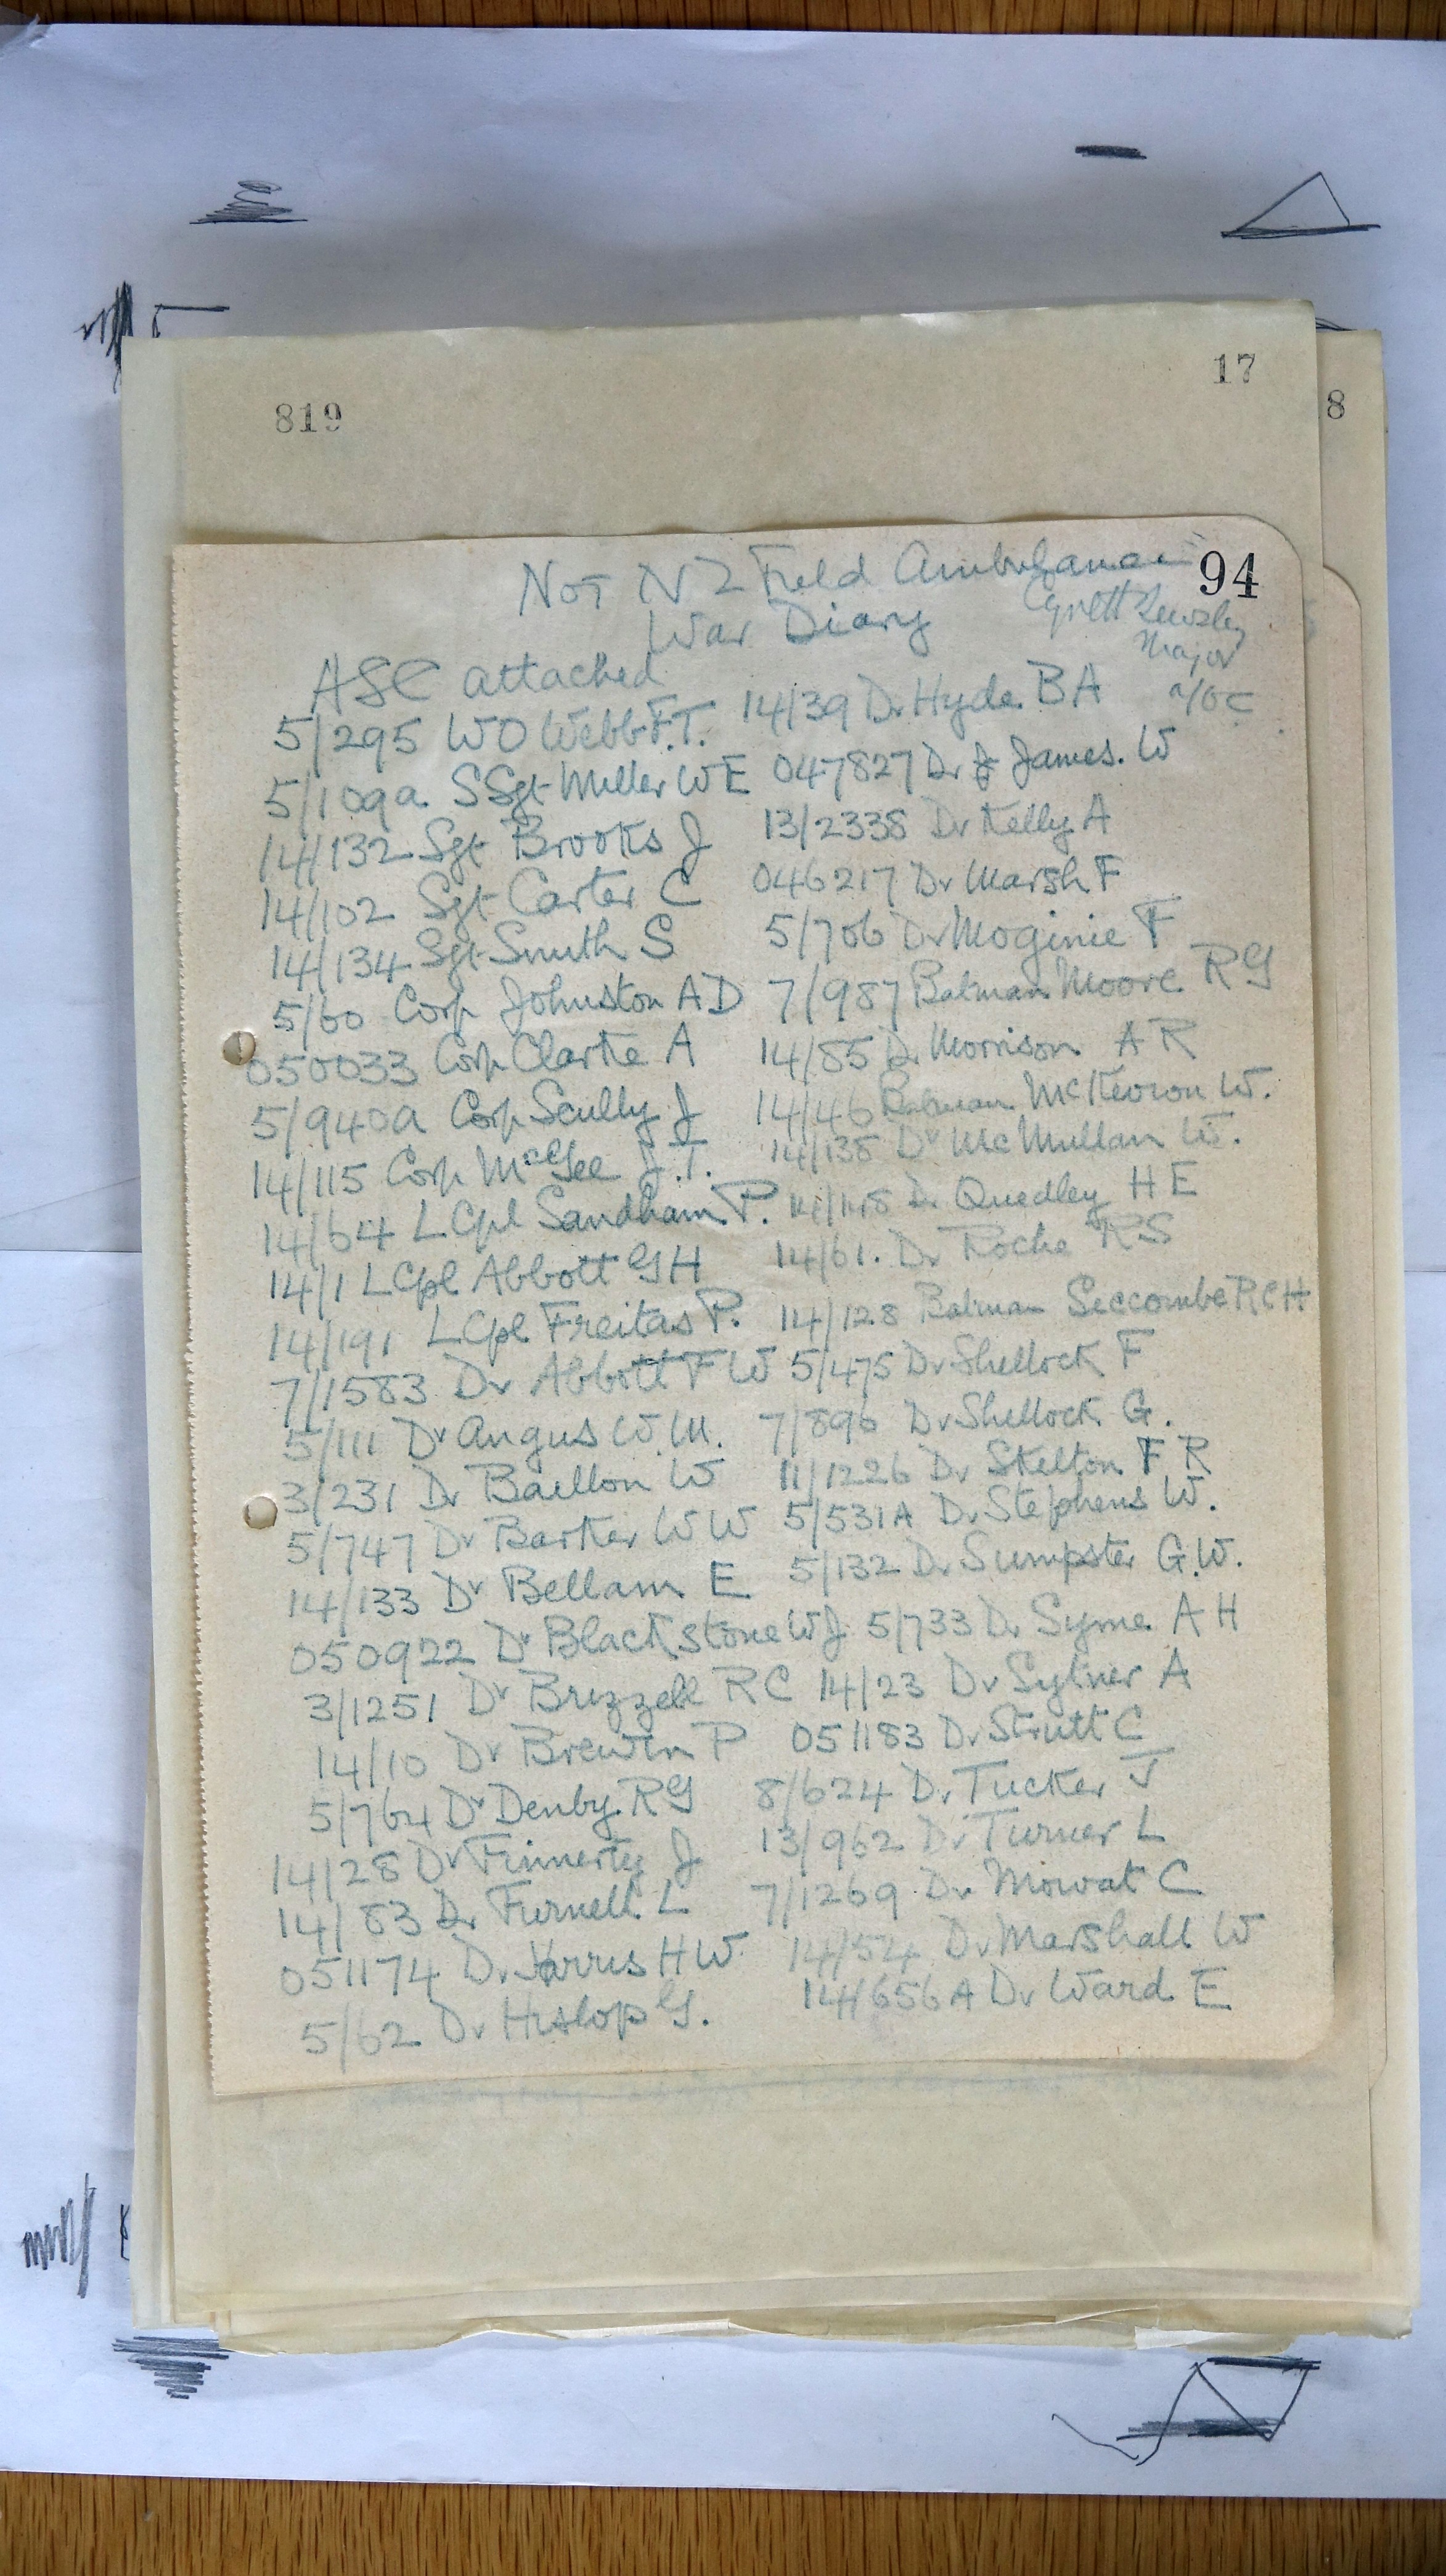 17
819
8
94
No 1 NZ Field Ambulance
War Diary
Major
a/OC
ASC attached
5/295 WO Webb F.T. 14/39 Dr Hyde BA
5/109a SSgt Miller WE 047827 Dr James. W
14/132 Sgt Brooks J 13/2338 Dr Kelly A
14/102 Sgt Carter C 046217 Dr Marsh F
14/134 Sgt Smith S 5/706 Dr Moginie F
5/60 Corp Johnston AD 7/987 Batman Moore RG
050033 Corp Clarke A 14/85 Dr Morrison AR
5/940a Corp Scully J 14/46 Batman McKeown W.
14/115 Corp McGee J.T. 14/138 Dr McMullan W.
14/64 LCpl Sandham P. 14/148 Dr Quedley HE
14/1 LCpl Abbott GH 14/61. Dr Roche RS
14/191 LCpl Freitas P. 14/128 Batman Seccombe RCH
7/1583 Dr Abbott FW 5/475 Dr Shellock F
5/111 Dr Angus W.M. 7/896 Dr Shellock G.
3/231 Dr Baillon W 11/1226 Dr Skelton FR
5/747 Dr Barker WW 5/531A Dr Stephens W.
14/133 Dr Bellam E 5/132 Dr Sumpster G.W.
050922 Dr Blackstone WJ 5/733 Dr Syme AH
3/1251 Dr Brizzell RC 14/23 Dr Sylner A
14/10 Dr Brewin P 051183 Dr Strutt C
5/764 Dr Denby RG 8/624 Dr Tucker J
14/28 Dr Finnerty J 13/962 Dr Turner L
14/83 Dr Furnell L 7/1269 Dr Mowat C
051174 Dr Harris HW 14/54 Dr Marshall W
5/62 Dr Hislop G. 14/656A Dr Ward E